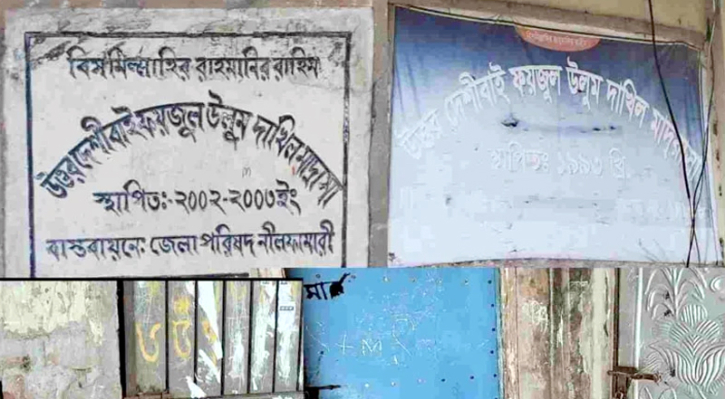 বিসমিল্লাহির রাহমানির রাহিম
উত্তর দেশীবাই ফয়জুল উলুম দাখিল মাদ্রাসা
স্থাপিত:-২০০২-২০০৩ইং
বাস্তবায়নে: জেলা পরিষদ নীলফামারী
উত্তর দেশীবাই ফয়জুল উলুম দাখিল মাদ্রাসা
স্থাপিতঃ ১৯৯৩ খ্রি.
মা